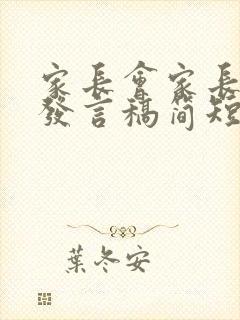 家長會家長
發言稿简短
葉冬安